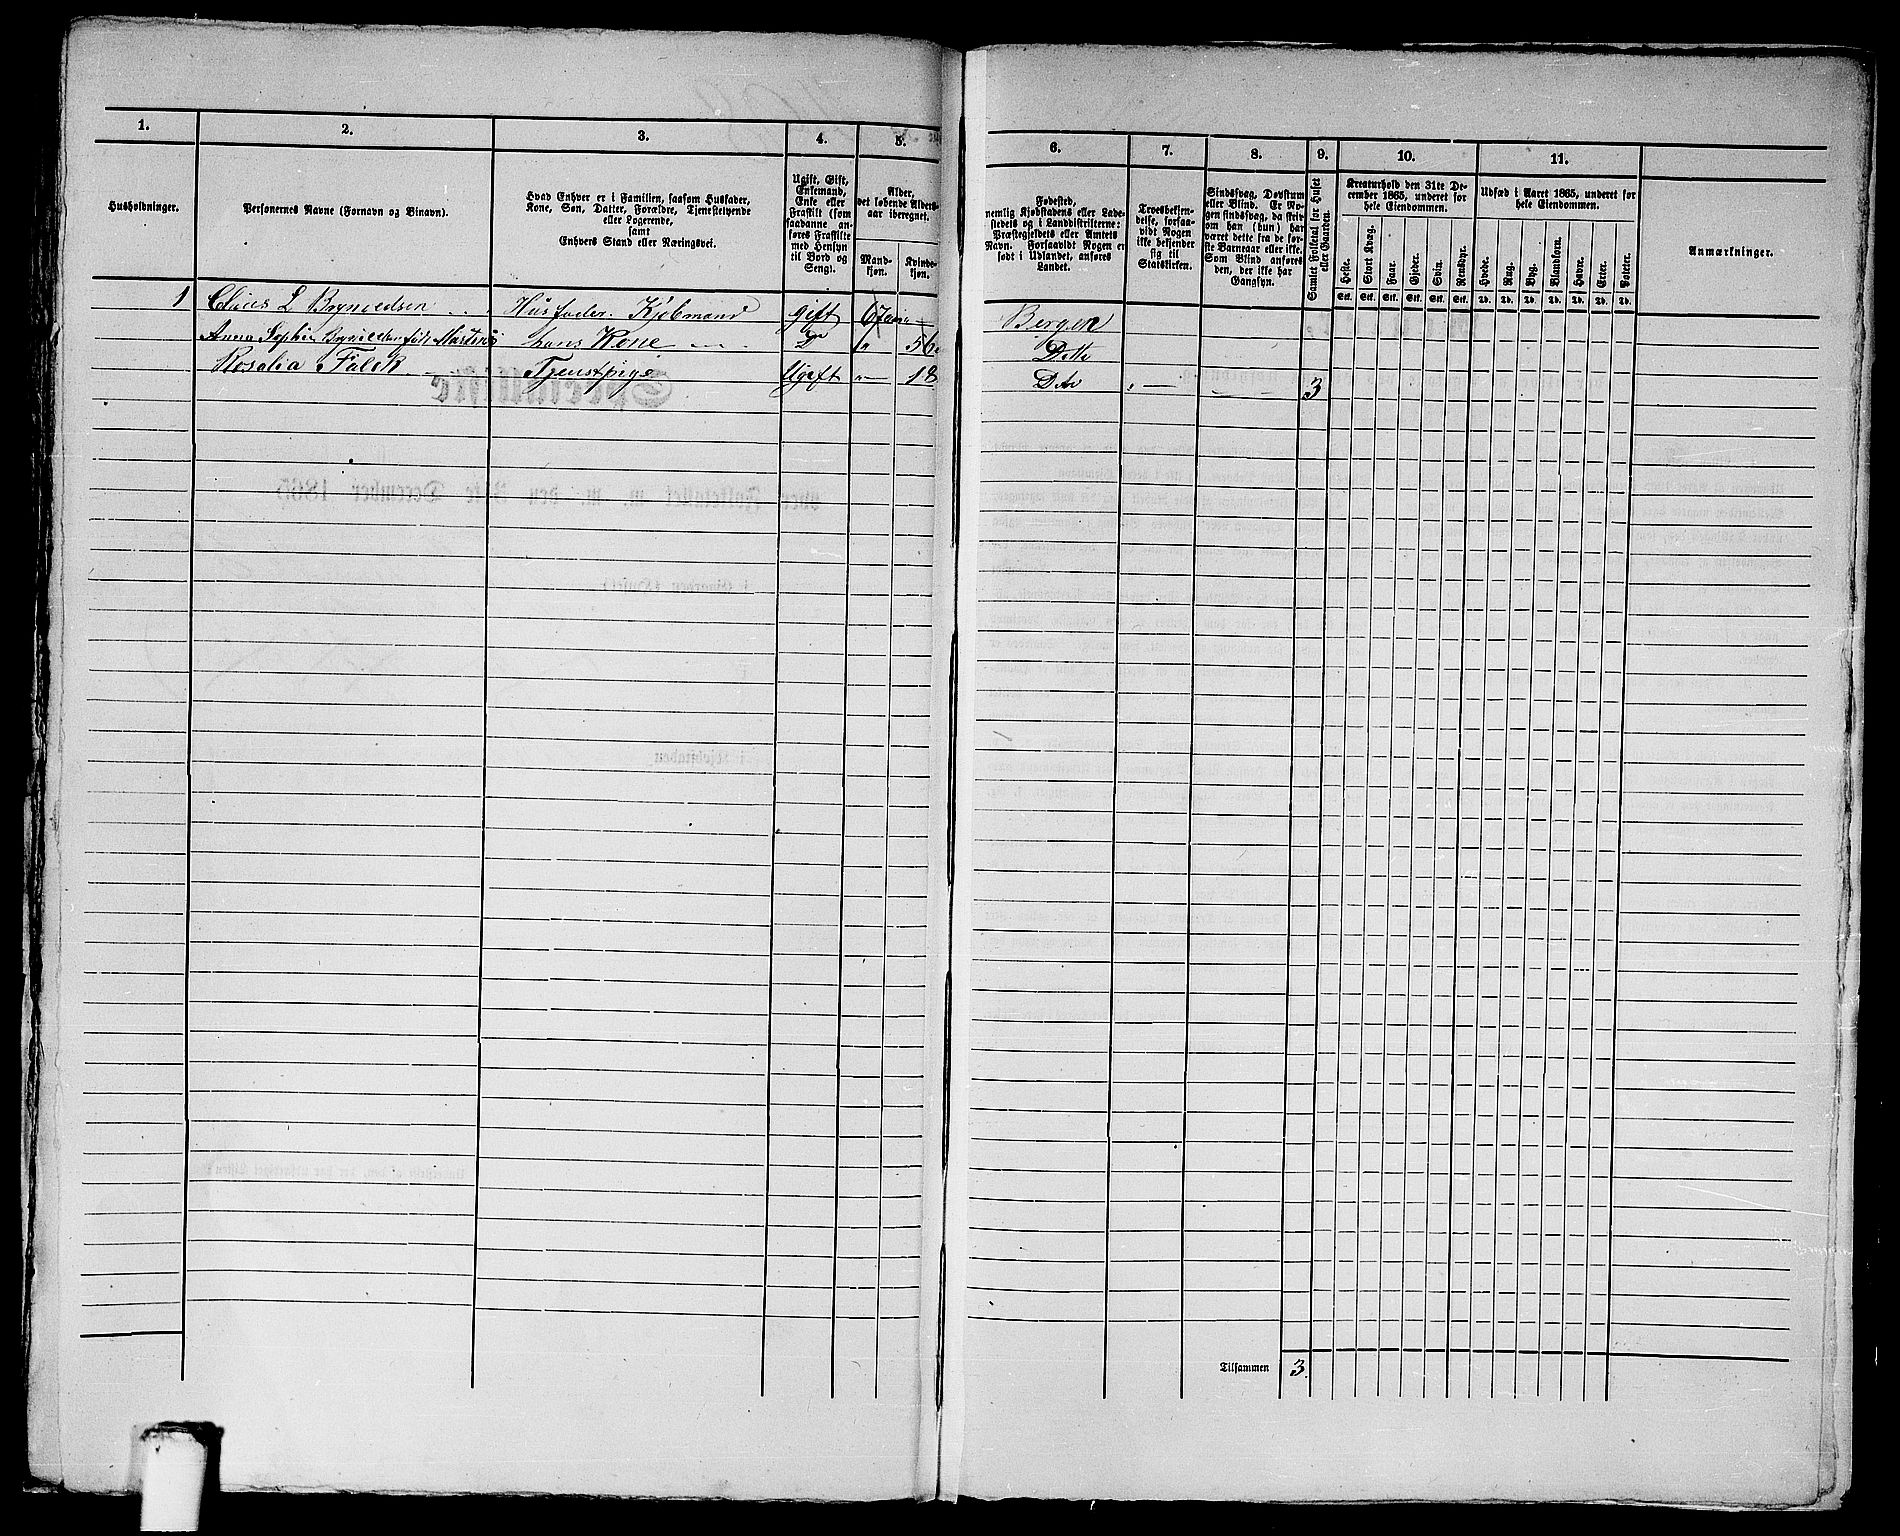 1.
2.
3.
4.
5.
6.
7.
8.
9.
10.
11.
Husholdninger.
Personernes Navne (Fornavn og Binavn).
Hvad Enhver er i Familien, saasom Husfader,
Kone, Søn, Datter, Forældre, Tjenestetyende
eller Logerende,
samt
Enhvers Stand eller Næringsvei.
Ugift, Gift,
Enkemand,
Enke eller
Fraskilt (som
saadanne an-
føres Fraskilte
med Hensyn
til Bord og
Seng).
Alder,
det løbende Alders-
aar iberegnet.
Mand-
kjøn.
Kvinde-
kjøn.
Fødested,
nemlig Kjøbstadens eller Lade-
stedets og i Landdistrikterne:
Præstegjeldets eller Amtets
Navn. Forsaavidt Nogen er
født i Udlandet, anføres
Landet.
Troesbekjen-
delse, forsaa-
vidt Nogen
ikke bekjender
sig til
Statskirken.
Sindssvag, Døvstum
eller Blind. Er No-
gen sindssvag, da skriv
om han (hun) har
været dette fra de før-
ste Barneaar eller ikke.
Som Blind anføres
den, der ikke har
Gangsyn.
Samlet Folketal for Huset
eller Gaarden.
Kreaturhold den 31te De-
cember 1865, underet for
hele Eiendommen.
Heste.
Stort Kvæg.
Faar.
Gjeder.
Svin.
Rensdyr.
Stk. Stk. Stk. Stk. Stk. Stk.
Udsæd i Aaret 1865, underet for
hele Eiendommen.
Hvede.
Rug.
Byg.
Blandkorn.
Havre.
Erter.
Poteter.
Td. Td. Td. Td. Td. Td. Td.
Anmærkninger.
1 Claus L Brynildsen Husfader. Kjøbmand gift 67 Bergen
Anna Sophie født hans Kone 56 Ditto
Rosalia Falck Tjenstpige Ugift 18 Dito 3
Tilsammen 3.